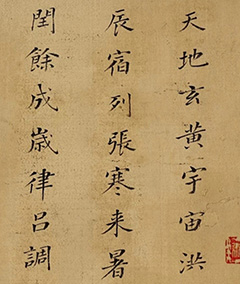 天地玄黃宇宙洪
辰宿列張寒来暑
閏餘成歲律呂調